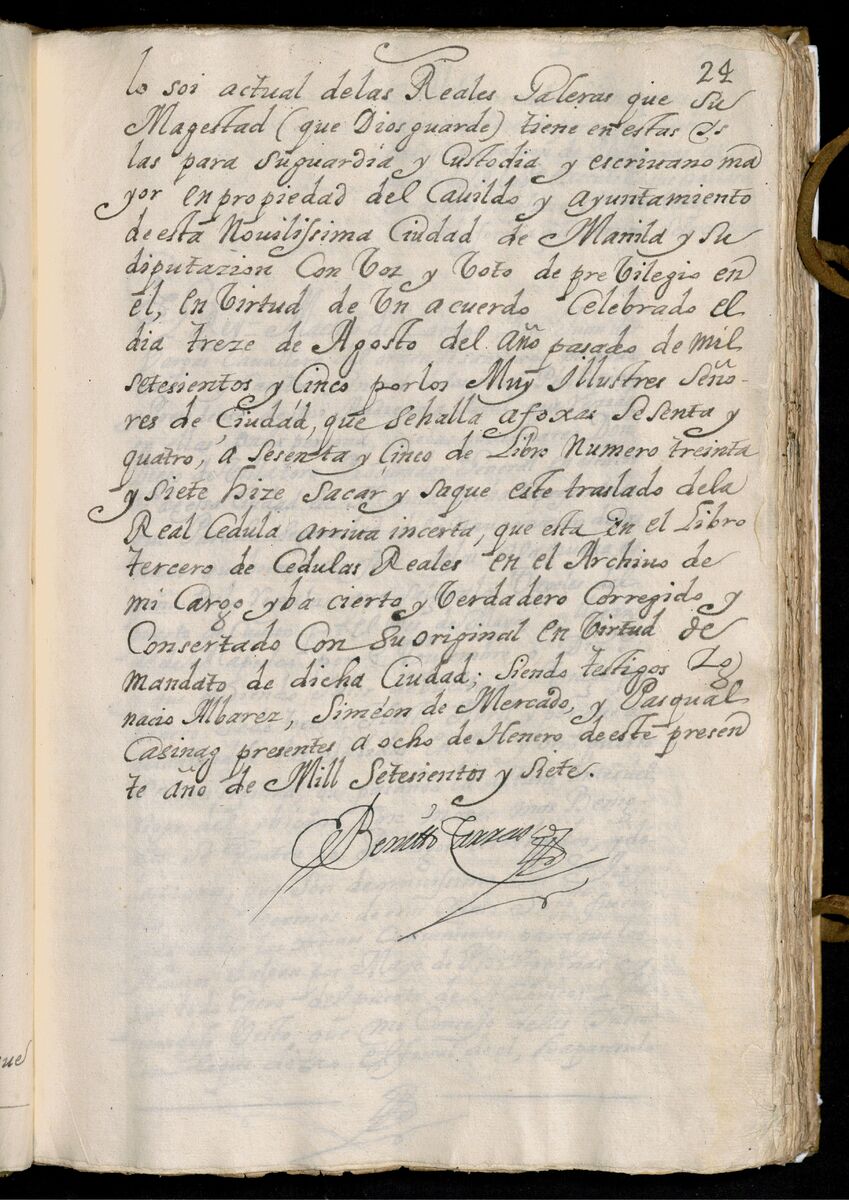 24
lo soi actual delas Reales Galeras que su
Magestad (que Dios guarde) tiene en estas Ys
las para suguardia y Custodia y escriuano ma
yor en propiedad del Cauildo y ayuntamiento
de esta Nouilissima Ciudad de Manila y su
diputazion Con Voz y Voto de preVilegio en
el, en Virtud de Un acuerdo Celebrado el
dia treze de Agosto del Año pasado de mil
setesientos y Cinco porlos Muy Illustres Seño-
res de Ciudad, que sehalla afoxas Sesenta y
quatro, a Sesenta y Cinco de Libro Numero treinta
y siete hize Sacar y saque este traslado dela
Real Cedula arriua incerta, que esta en el Libro
tercero de Cedulas Reales en el Archiuo de
mi Cargo, yba cierto y Verdadero Corregido y
Consertado Con su original en Virtud de
mandato de dicha Ciudad; siendo testigos Ig
nacio Albarez, Simeon de Mercado, y Pasqual
Casinag presentes a ocho de Henero de este presen
te año de Mill Setesientos y siete.